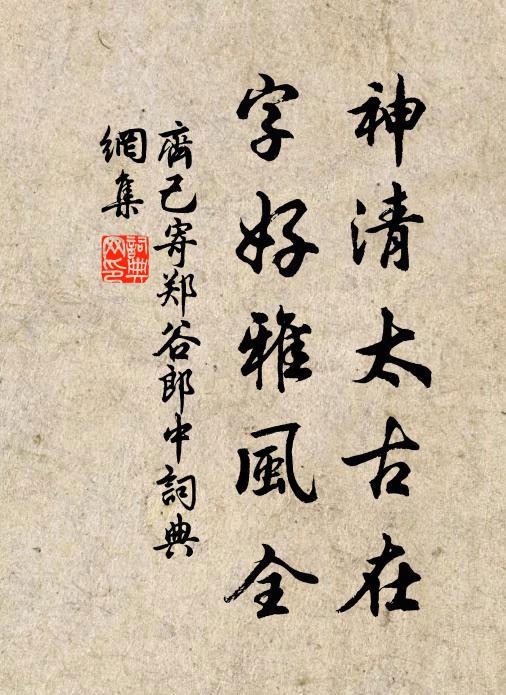 神清太古在
字好雅風全
齊己寄郑谷郎中詞典
網集
詞典网印